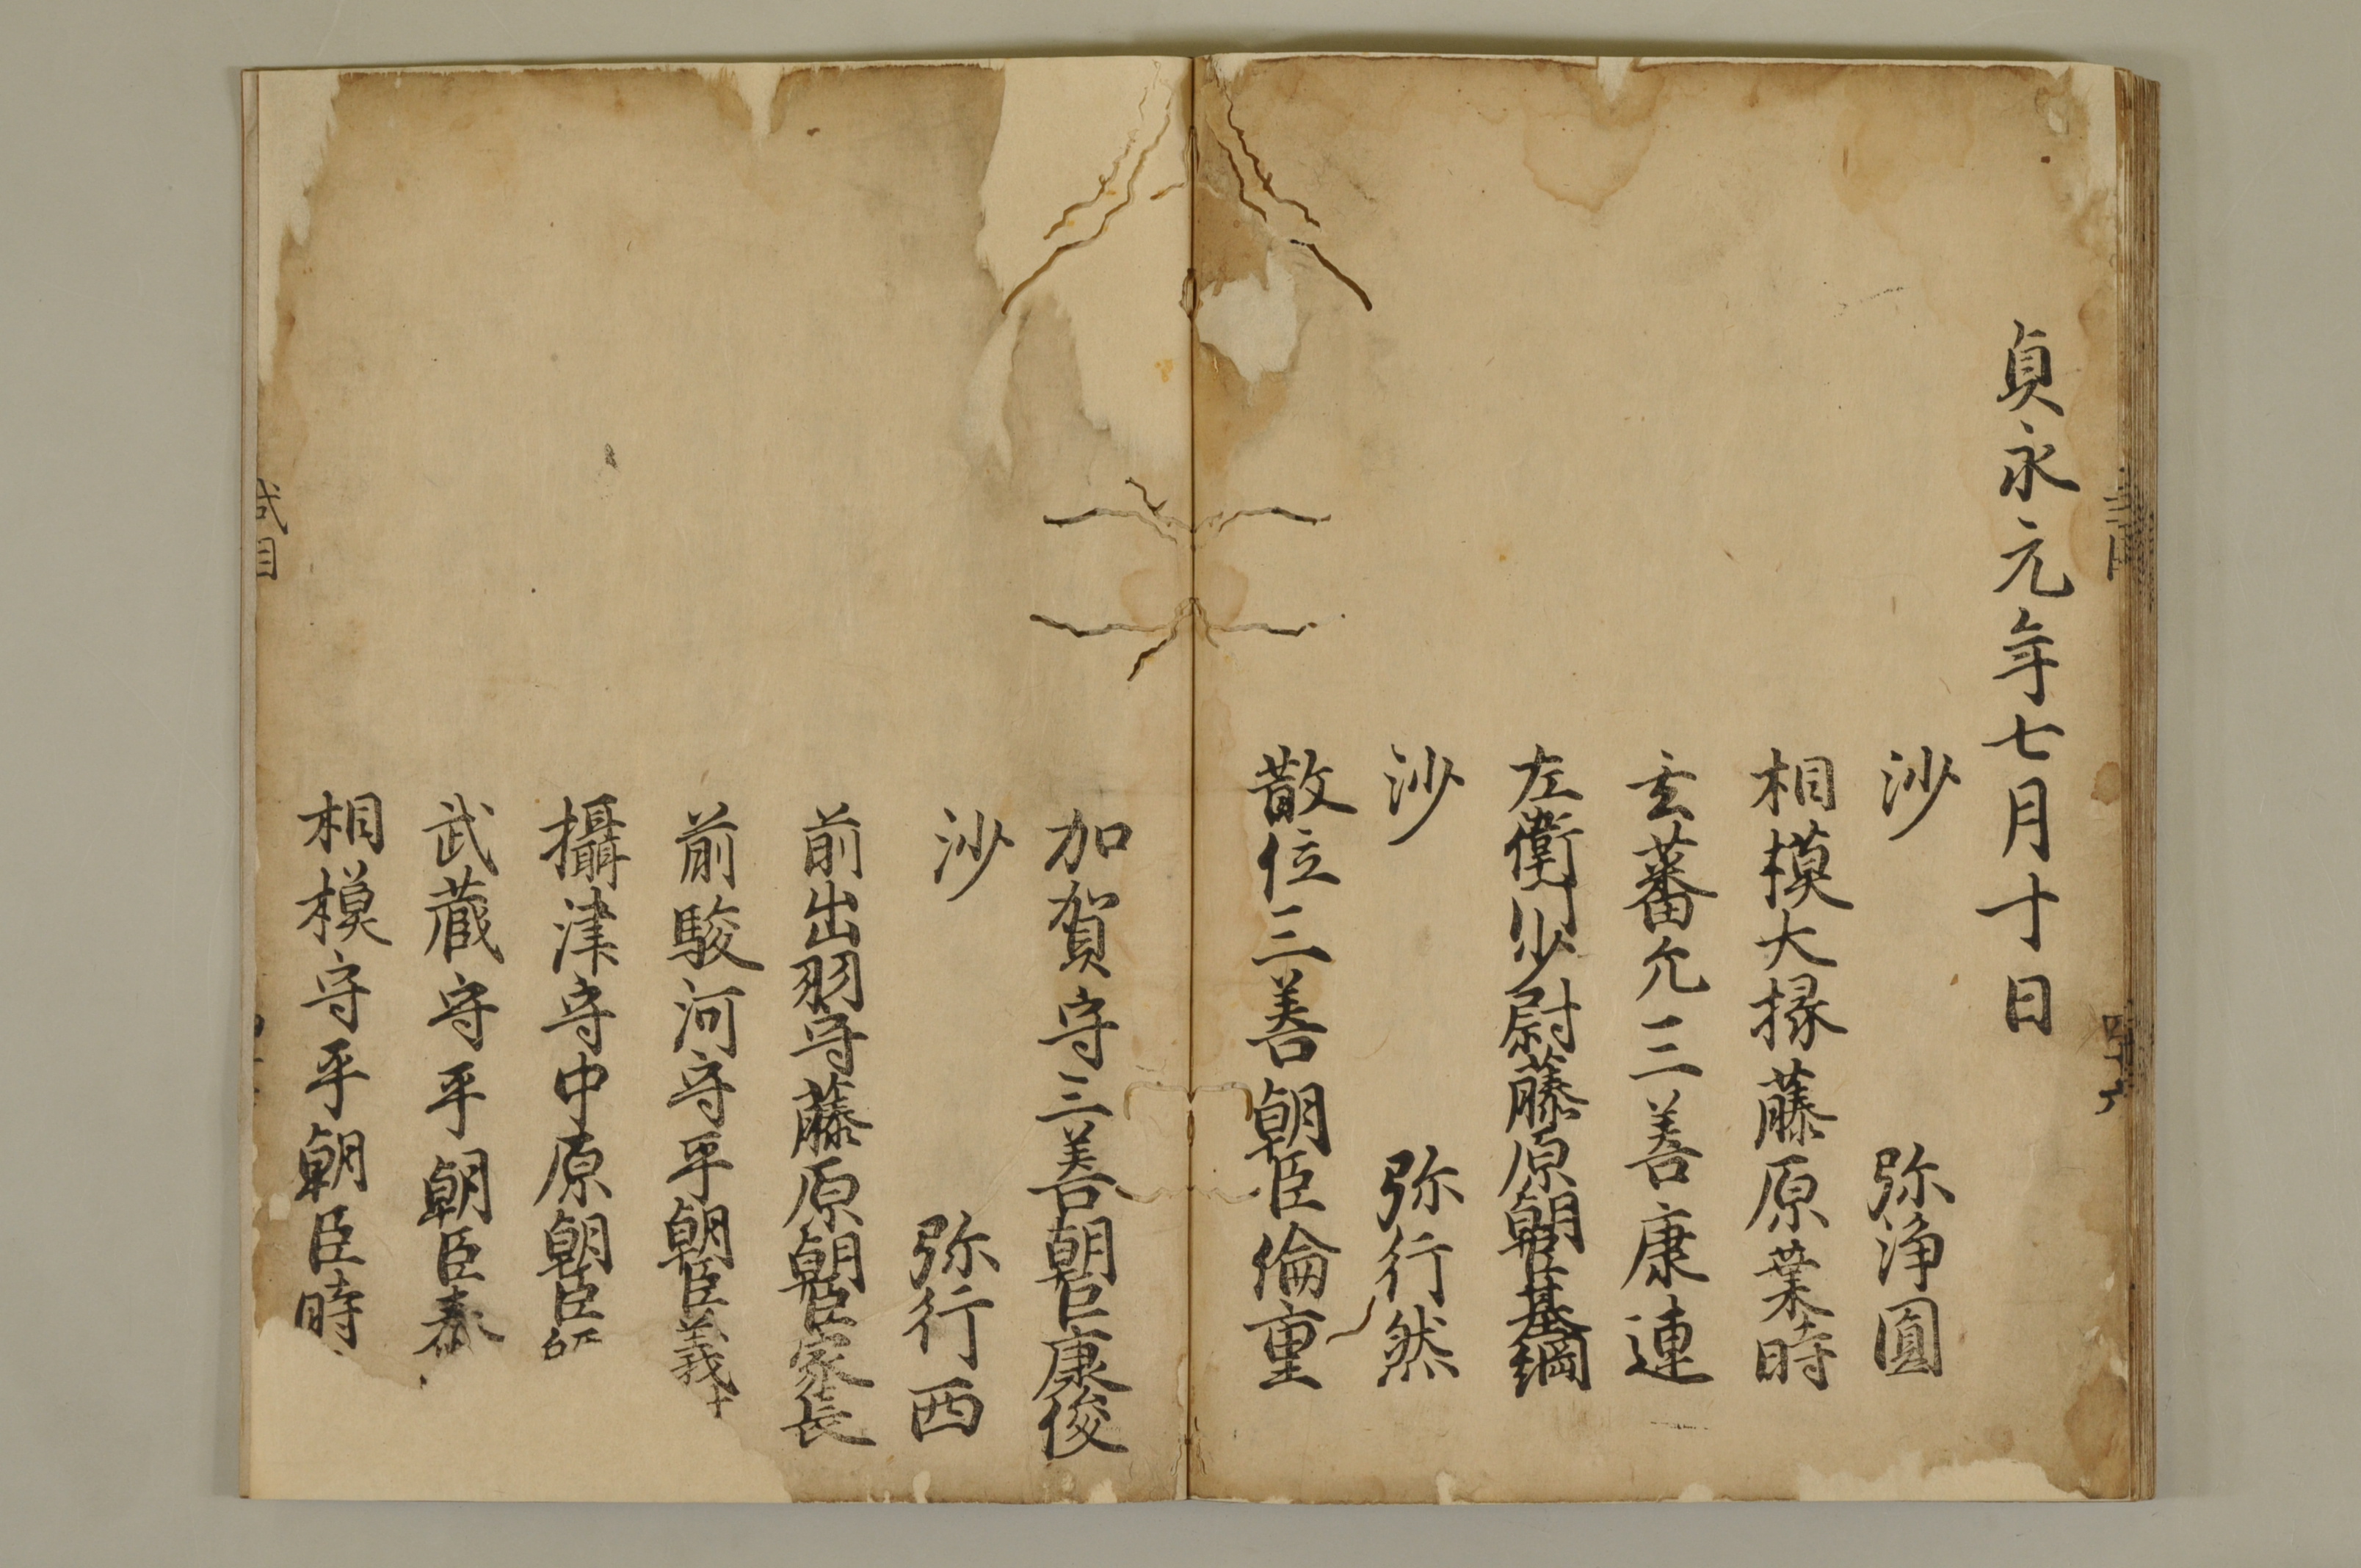 貞永元年七月十日
沙 弥浄圓
相模大掾藤原業時
玄蕃允三善康連
左衛門少尉藤原朝臣基綱
沙 弥行然
散位三善朝臣倫重
加賀守三善朝臣康俊
沙 弥行西
前出羽守藤原朝臣家長
前駿河守平朝臣義
攝津守中原朝臣
武蔵守平朝臣泰
相模守平朝臣時
式目